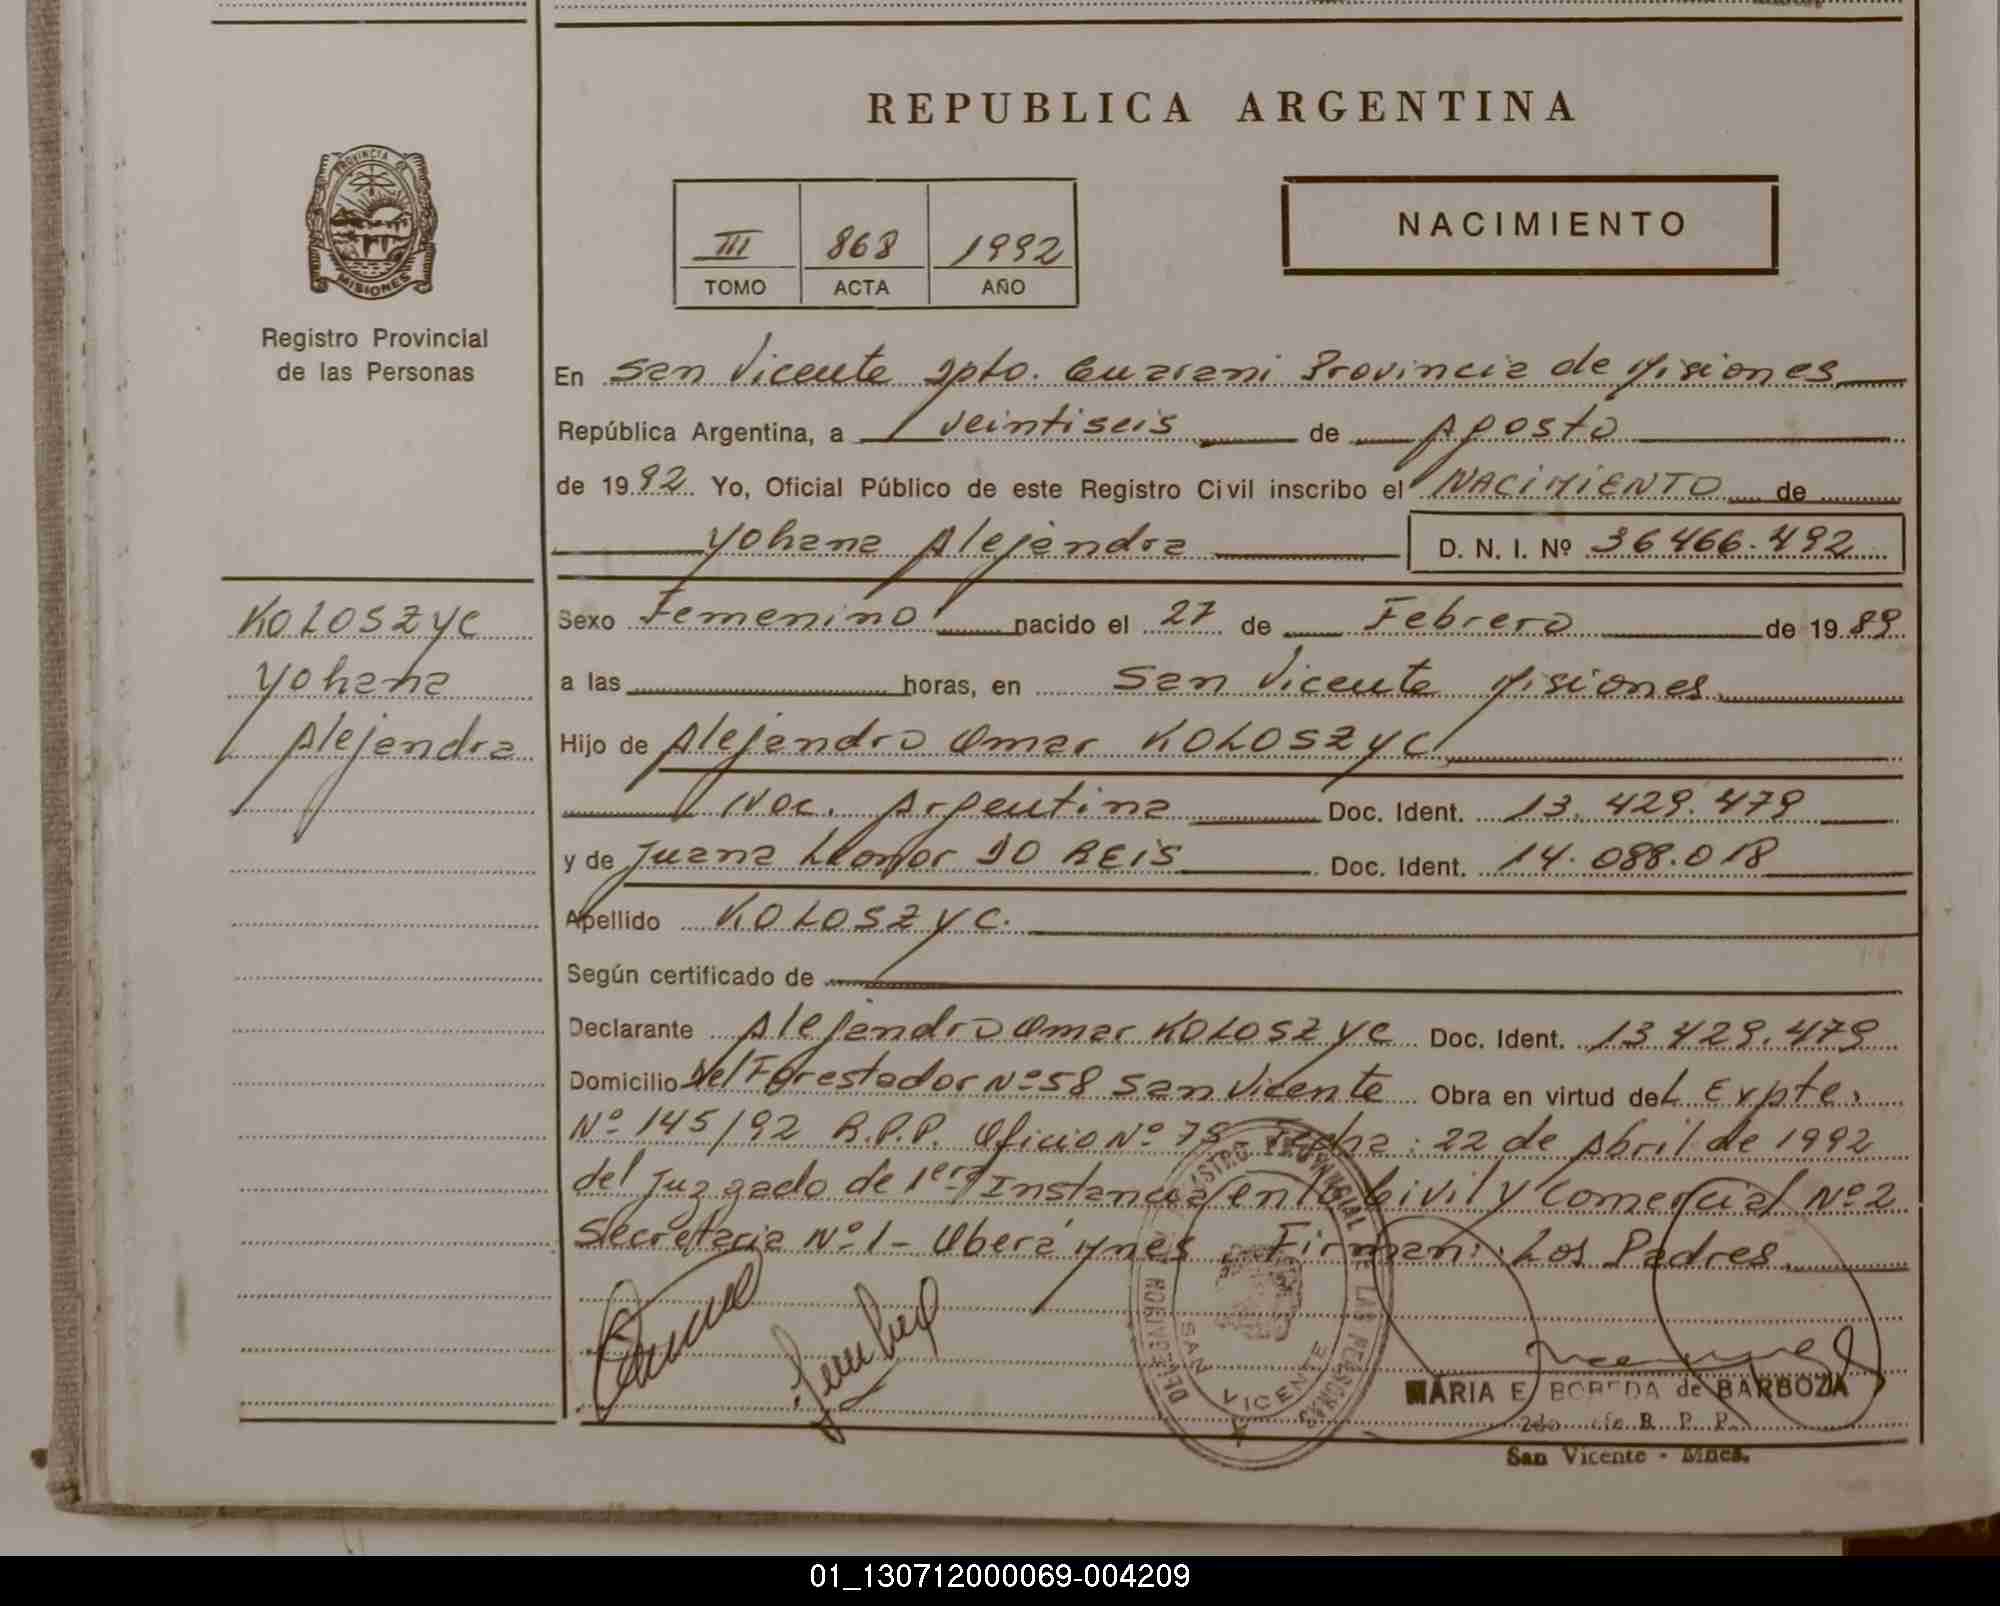 REPUBLICA ARGENTINA
PROVINCIA DE MISIONES
Registro Provincial
de las Personas
III 868 1992
TOMO ACTA AÑO
NACIMIENTO
En San Vicente Dpto. Guarani Provincia de Misiones
República Argentina, a veintiseis de Agosto
de 1992 Yo, Oficial Público de este Registro Civil inscribo el NACIMIENTO de
Yohana Alejandra D. N. I. Nº 36466.492
KOLOSZYC
Yohana
Alejandra
Sexo Femenino nacido el 27 de Febrero de 1989
a las horas, en San Vicente Misiones
Hijo de Alejandro Omar KOLOSZYC
Nac. Argentina Doc. Ident. 13.429.479
y de Juana Leonor DO REIS Doc. Ident. 14.088.018
Apellido KOLOSZYC.
Según certificado de
Declarante Alejandro Omar KOLOSZYC Doc. Ident. 13.429.479
Domicilio Del Forestador Nº 58 San Vicente Obra en virtud del Expte.
Nº 145/92 R.P.P. Oficio Nº Fecha: 22 de Abril de 1992
del Juzgado de 1era Instancia en lo Civil y Comercial Nº 2
Secretaria Nº 1 - Oberá Mnes Firman: Los Padres
REGISTRO PROVINCIAL DE LAS PERSONAS
SAN VICENTE
MARIA E. BOBEDA de BARBOZA
R. P. P.
San Vicente - Mnes.
01_130712000069-004209